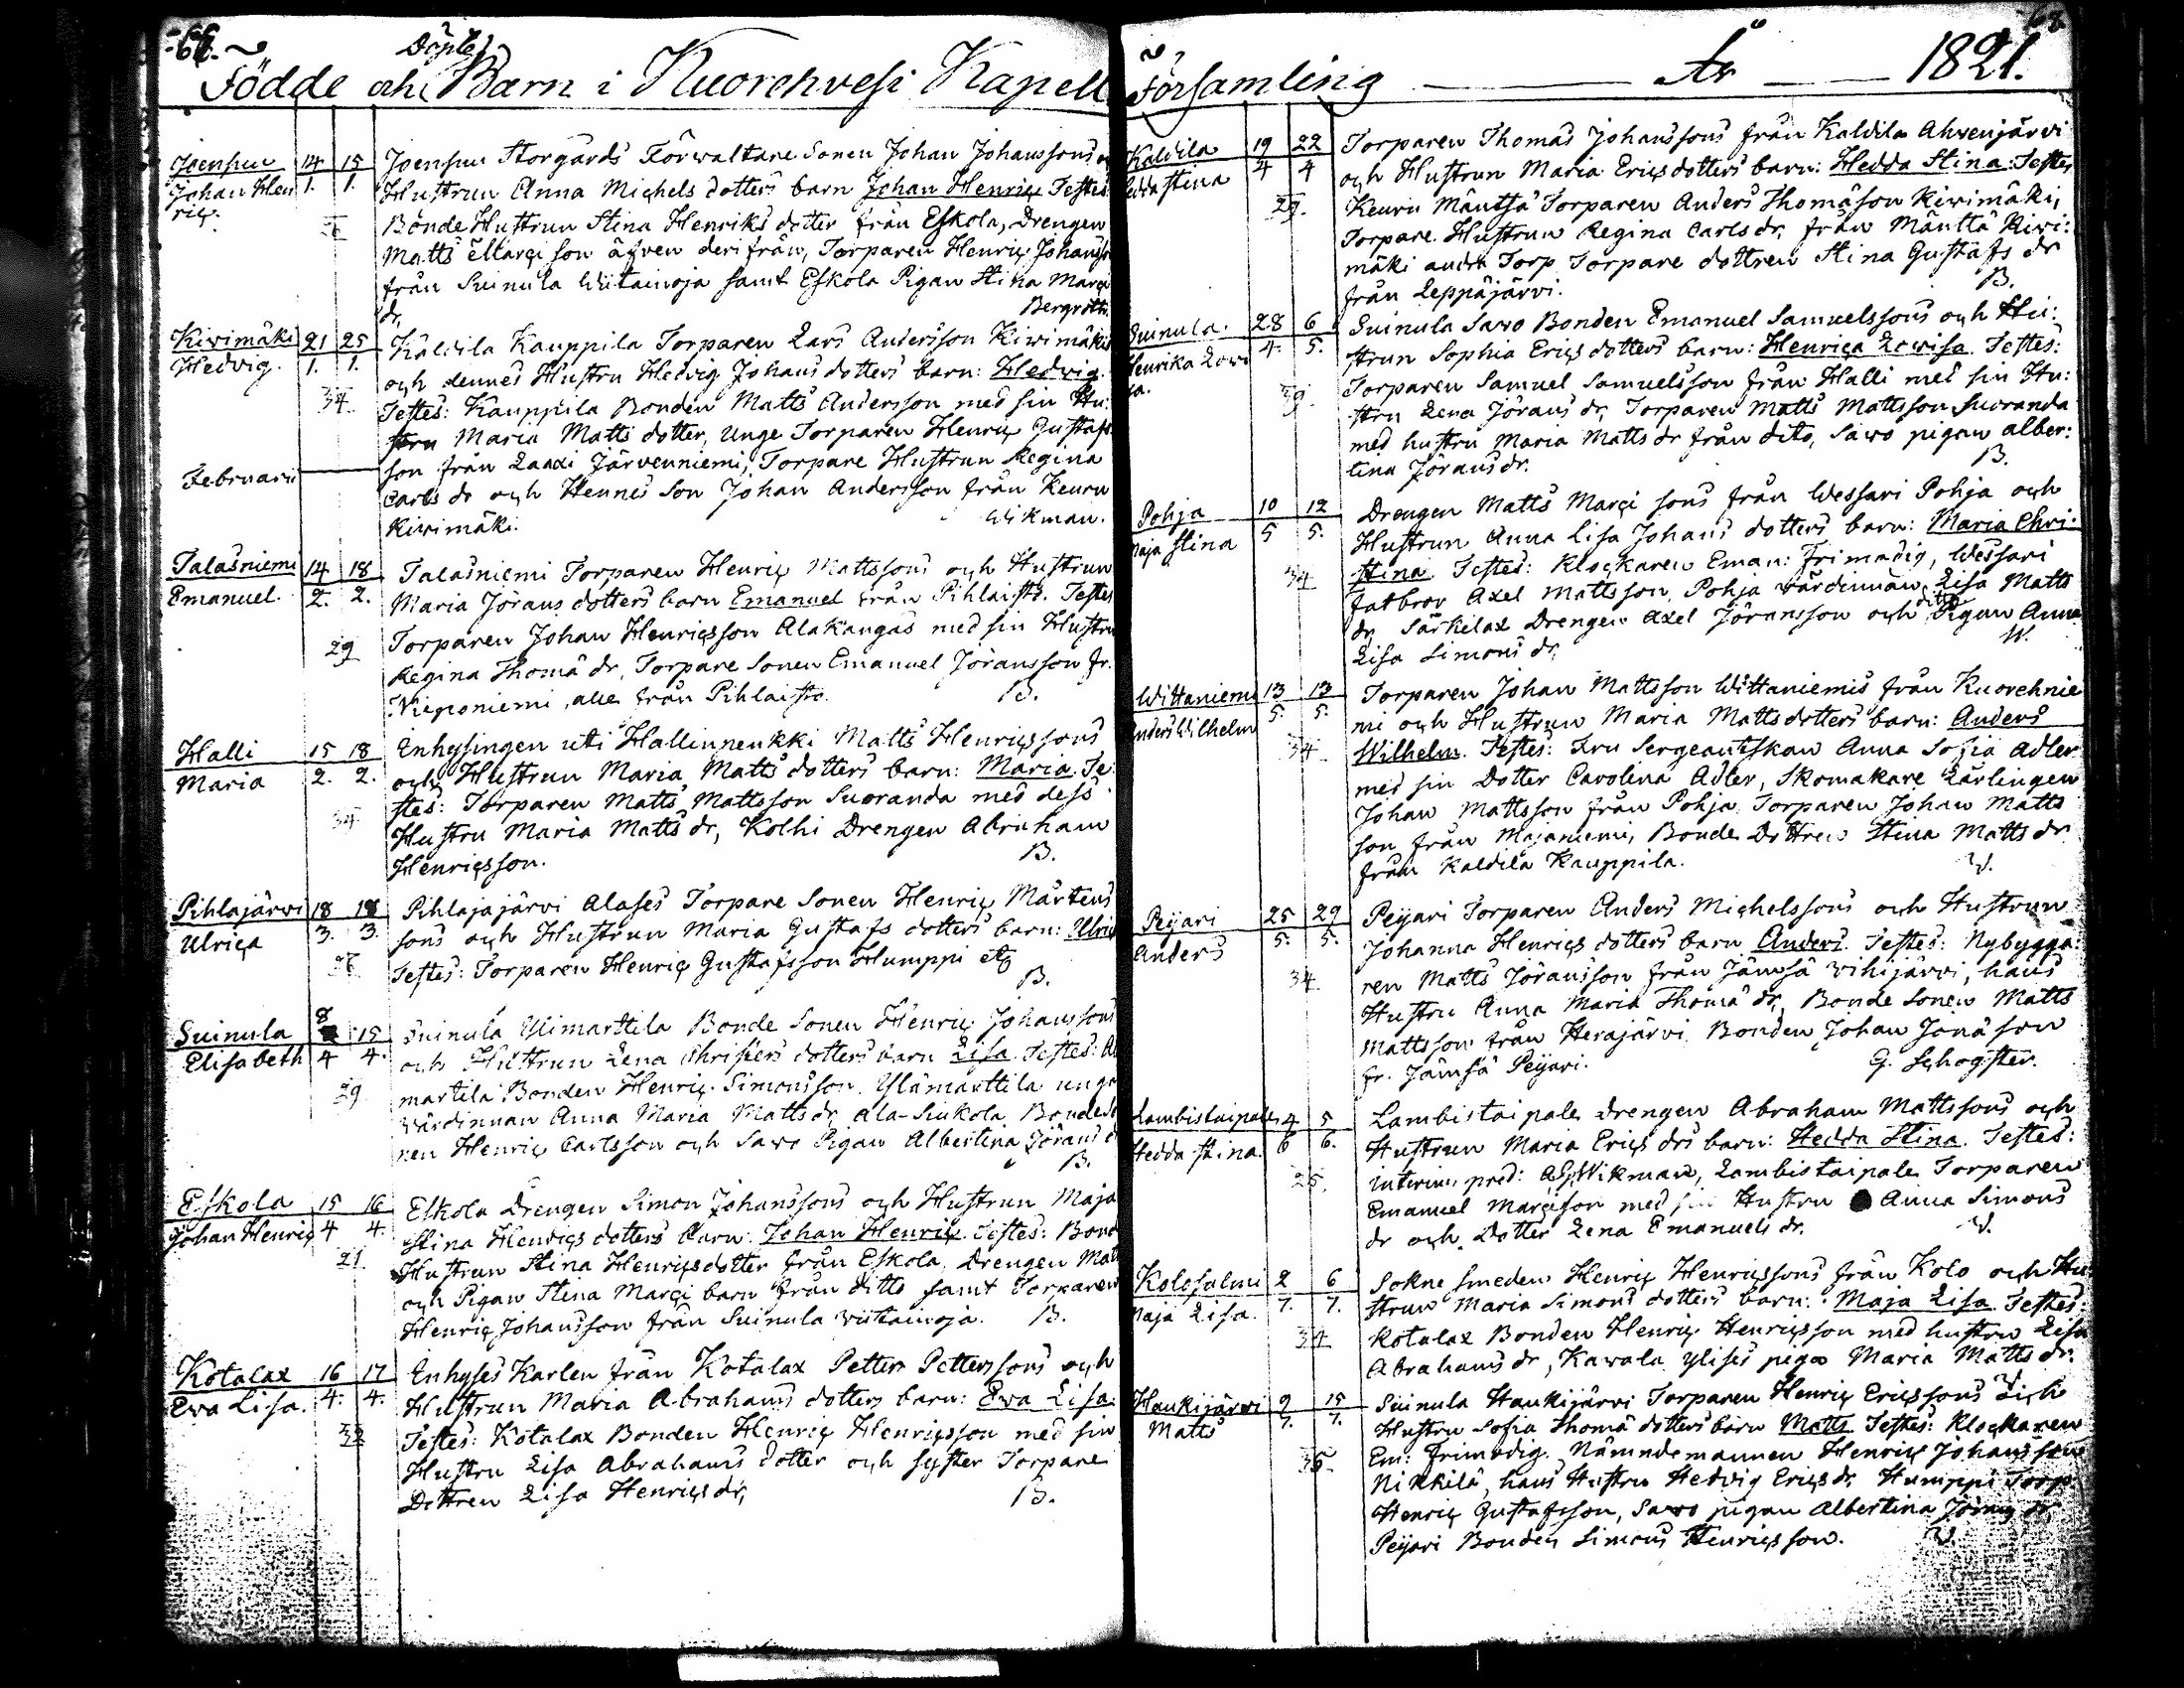 66.
Döpte
Födde och Barn i Kuorehvesi Kapell
Joensuu 14 15 Joensuu Storgårds Förwaltare Sonen Johan Johanssons
Johan Hen 1. 1. Hustrun Anna Michels dotters barn Johan Henric Testes
ric.
Bonde Hustrun Stina Henriks dotter från Eskola, Drengen
Matts Marci son äfven derifrån, Torparen Henric Johans
från Suinula Wiitainoja samt Eskola Pigan Stina Marci
dr, Bergroth.
Kivimäki 21 25 Kaldila Kauppila Torparen Lars Andersson Kivimäkis
Hedvig. 1. 1. och dennes Hustru Hedvig Johans dotters barn: Hedvig.
34. Testes: Kauppila Bonden Matts Andersson med sin Hu:
stru Maria Matts dotter, Unge Torparen Henric Gustafs
son från Laaxi Järvenniemi, Torpare Hustrun Regina
Februarii
Carls dr och Hennes Son Johan Andersson från Keuru
Kivimäki. Wikman.
Talasniemi 14 18 Talasniemi Torparen Henric Mattssons och Hustrun
Emanuel. 2. 2. Maria Jörans dotters barn Emanuel från Pihlaisto. Testes
29 Torparen Johan Henricsson Alakangas med sin Hustru
Regina Thomæ dr, Torpare Sonen Emanuel Jöransson fr.
Niiponiemi, alla från Pihlaisto. B.
Halli 15 18 Enhysingen uti Hallinnenkki Matts Henricssons
Maria 2. 2. och Hustrun Maria Matts dotters barn: Maria. Te
stes: Torparen Matts Mattsson Suoranda med dess
34. Hustru Maria Matts dr, Kolhi Drengen Abraham
Henricsson. B.
Pihlajärvi 18 18 Pihlajajärvi Alases Torpare Sonen Henric Mårtens
Ulrica 3. 3. sons och Hustrun Maria Gustafs dotters barn: Ulric
Testes: Torparen Henric Gustafsson Humppi etc
B.
8
Suinula 15 Suinula Ylimarttila Bonde Sonen Henric Johanssons
Elisabeth 4 4. och Hustrun Lena Christers dotters barn Lisa. Testes: Al
29 martila Bonden Henric Simonsson. Ylämarttila unga
värdinnan Anna Maria Matts dr, Ala-Sukola Bonde So
nen Henric Carlsson och Savo Pigan Albertina Jörans d
B.
Eskola 15 16 Eskola Drengen Simon Johanssons och Hustrun Maja
Johan Henric 4 4. Stina Henrics dotters barn: Johan Henric. Testes: Bond
21. Hustrun Stina Henricsdotter från Eskola, Drengen Matt
och Pigan Stina Marci barn från ditto samt Torparen
Henric Johansson från Suinula Wiitainoja. B.
Kotalax 16 17 Enhyses Karlen från Kotalax Petter Petterssons och
Ewa Lisa. 4. 4. Hustrun Maria Abrahams dotters barn: Ewa Lisa.
32 Testes: Kotalax Bonden Henric Henricsson med sin
Hustru Lisa Abrahams dotter och syster Torpare
Dottren Lisa Henrics dr, B.
68
Församling År 1821.
Kaldila 19 22 Torparen Thomas Johanssons från Kaldila Ahvenjärvi
Hedda Stina 4 4 och Hustrun Maria Erics dotters barn: Hedda Stina. Testes
29. Keuru Mäntsä Torparen Anders Thomæson Kivimäki,
Torpare Hustrun Regina Carls dr, från Mänttä Kivi:
mäki andra Torp Torpare dottren Stina Gustafs dr
från Leppäjärvi. B.
Suinula. 28 6 Suinula Savo Bonden Emanuel Samuelssons och Hu:
Henrika Lowi 4. 5. strun Sophia Erics dotters barn: Henrica Lovisa. Testes:
sa. 29. Torparen Samuel Samuelsson från Halli med sin Hu:
stru Lena Jörans dr, Torparen Matts Mattsson Suoranda
med hustru Maria Matts dr från dito, Savo pigan Alber:
tina Jörans dr. B.
Pohja 10 12 Drengen Matts Marci sons från Wessari Pohja och
Maja Stina 5 5. Hustrun Anna Lisa Johans dotters barn: Maria Chri:
34 stina. Testes: Klockaren Eman: Frimodig, Wessari
Fatbror Axel Mattsson, Pohja värdinnan Lisa Matts
dr, Särkilax Drengen Axel Jöransson och ditto Pigan Anna
Lisa Simons dr, W.
Wittaniemi 13 13 Torparen Johan Mattsson Wittaniemis från Kuorehnie
Anders Wilhelm 5. 5. mi och Hustrun Maria Mattsdotters barn: Anders
34. Wilhelm. Testes: Fru Sergeantskan Anna Sofia Adler
med sin Dotter Carolina Adler, Skomakare Lärlingen
Johan Mattsson från Pohja Torparen Johan Matts
son från Majaniemi, Bonde Dottren Stina Matts dr
från Kaldila Kauppila. W.
Peijari 25 29 Peijari Torparen Anders Michelssons och Hustrun
Anders 5. 5. Johanna Henrics dotters barn Anders. Testes: Nybygga:
34. ren Matts Jöransson från Jämsä Vihijärvi, hans
Hustru Anna Maria Thomæ dr, Bonde Sonen Matts
Mattsson från Herajärvi Bonden Johan Jonæ son
fr. Jämsä Peijari. G. Schogster.
Lambistaipale 4 5 Lambistaipale drengen Abraham Mattssons och
Hedda Stina. 6 6. Hustrun Maria Erics drs barn: Hedda Stina. Testes:
25. interims pred: Wikman, Lambistaipale Torparen
Emanuel Marcison med sin Hustru Anna Simons
dr och Dotter Lena Emanuels dr. W.
Kolosalmi 2 6 Sokne Smeden Henric Henricssons från Kolo och Hu
Maja Lisa. 7. 7. strun Maria Simons dotters barn: Maja Lisa. Testes:
34 Kotalax Bonden Henric Henricsson med hustru Lisa
Abrahams dr, Kawala Ylises piga Maria Matts dr.
W.
Haukijärvi 9 15 Suinula Haukijärvi Torparen Henric Ericssons och
Matts 7. 7. Hustru Sofia Thomæ dotters barn Matts Testes: Klockaren
35. Em: Frimodig. Nämndemannen Henric Johansson
Nikkilä, hans Hustru Hedvig Erics dr, Humppi Torp.
Henric Gustafsson, Savo pigan Albertina Jörans dr,
Peijari Bonden Simons Henricsson. W.